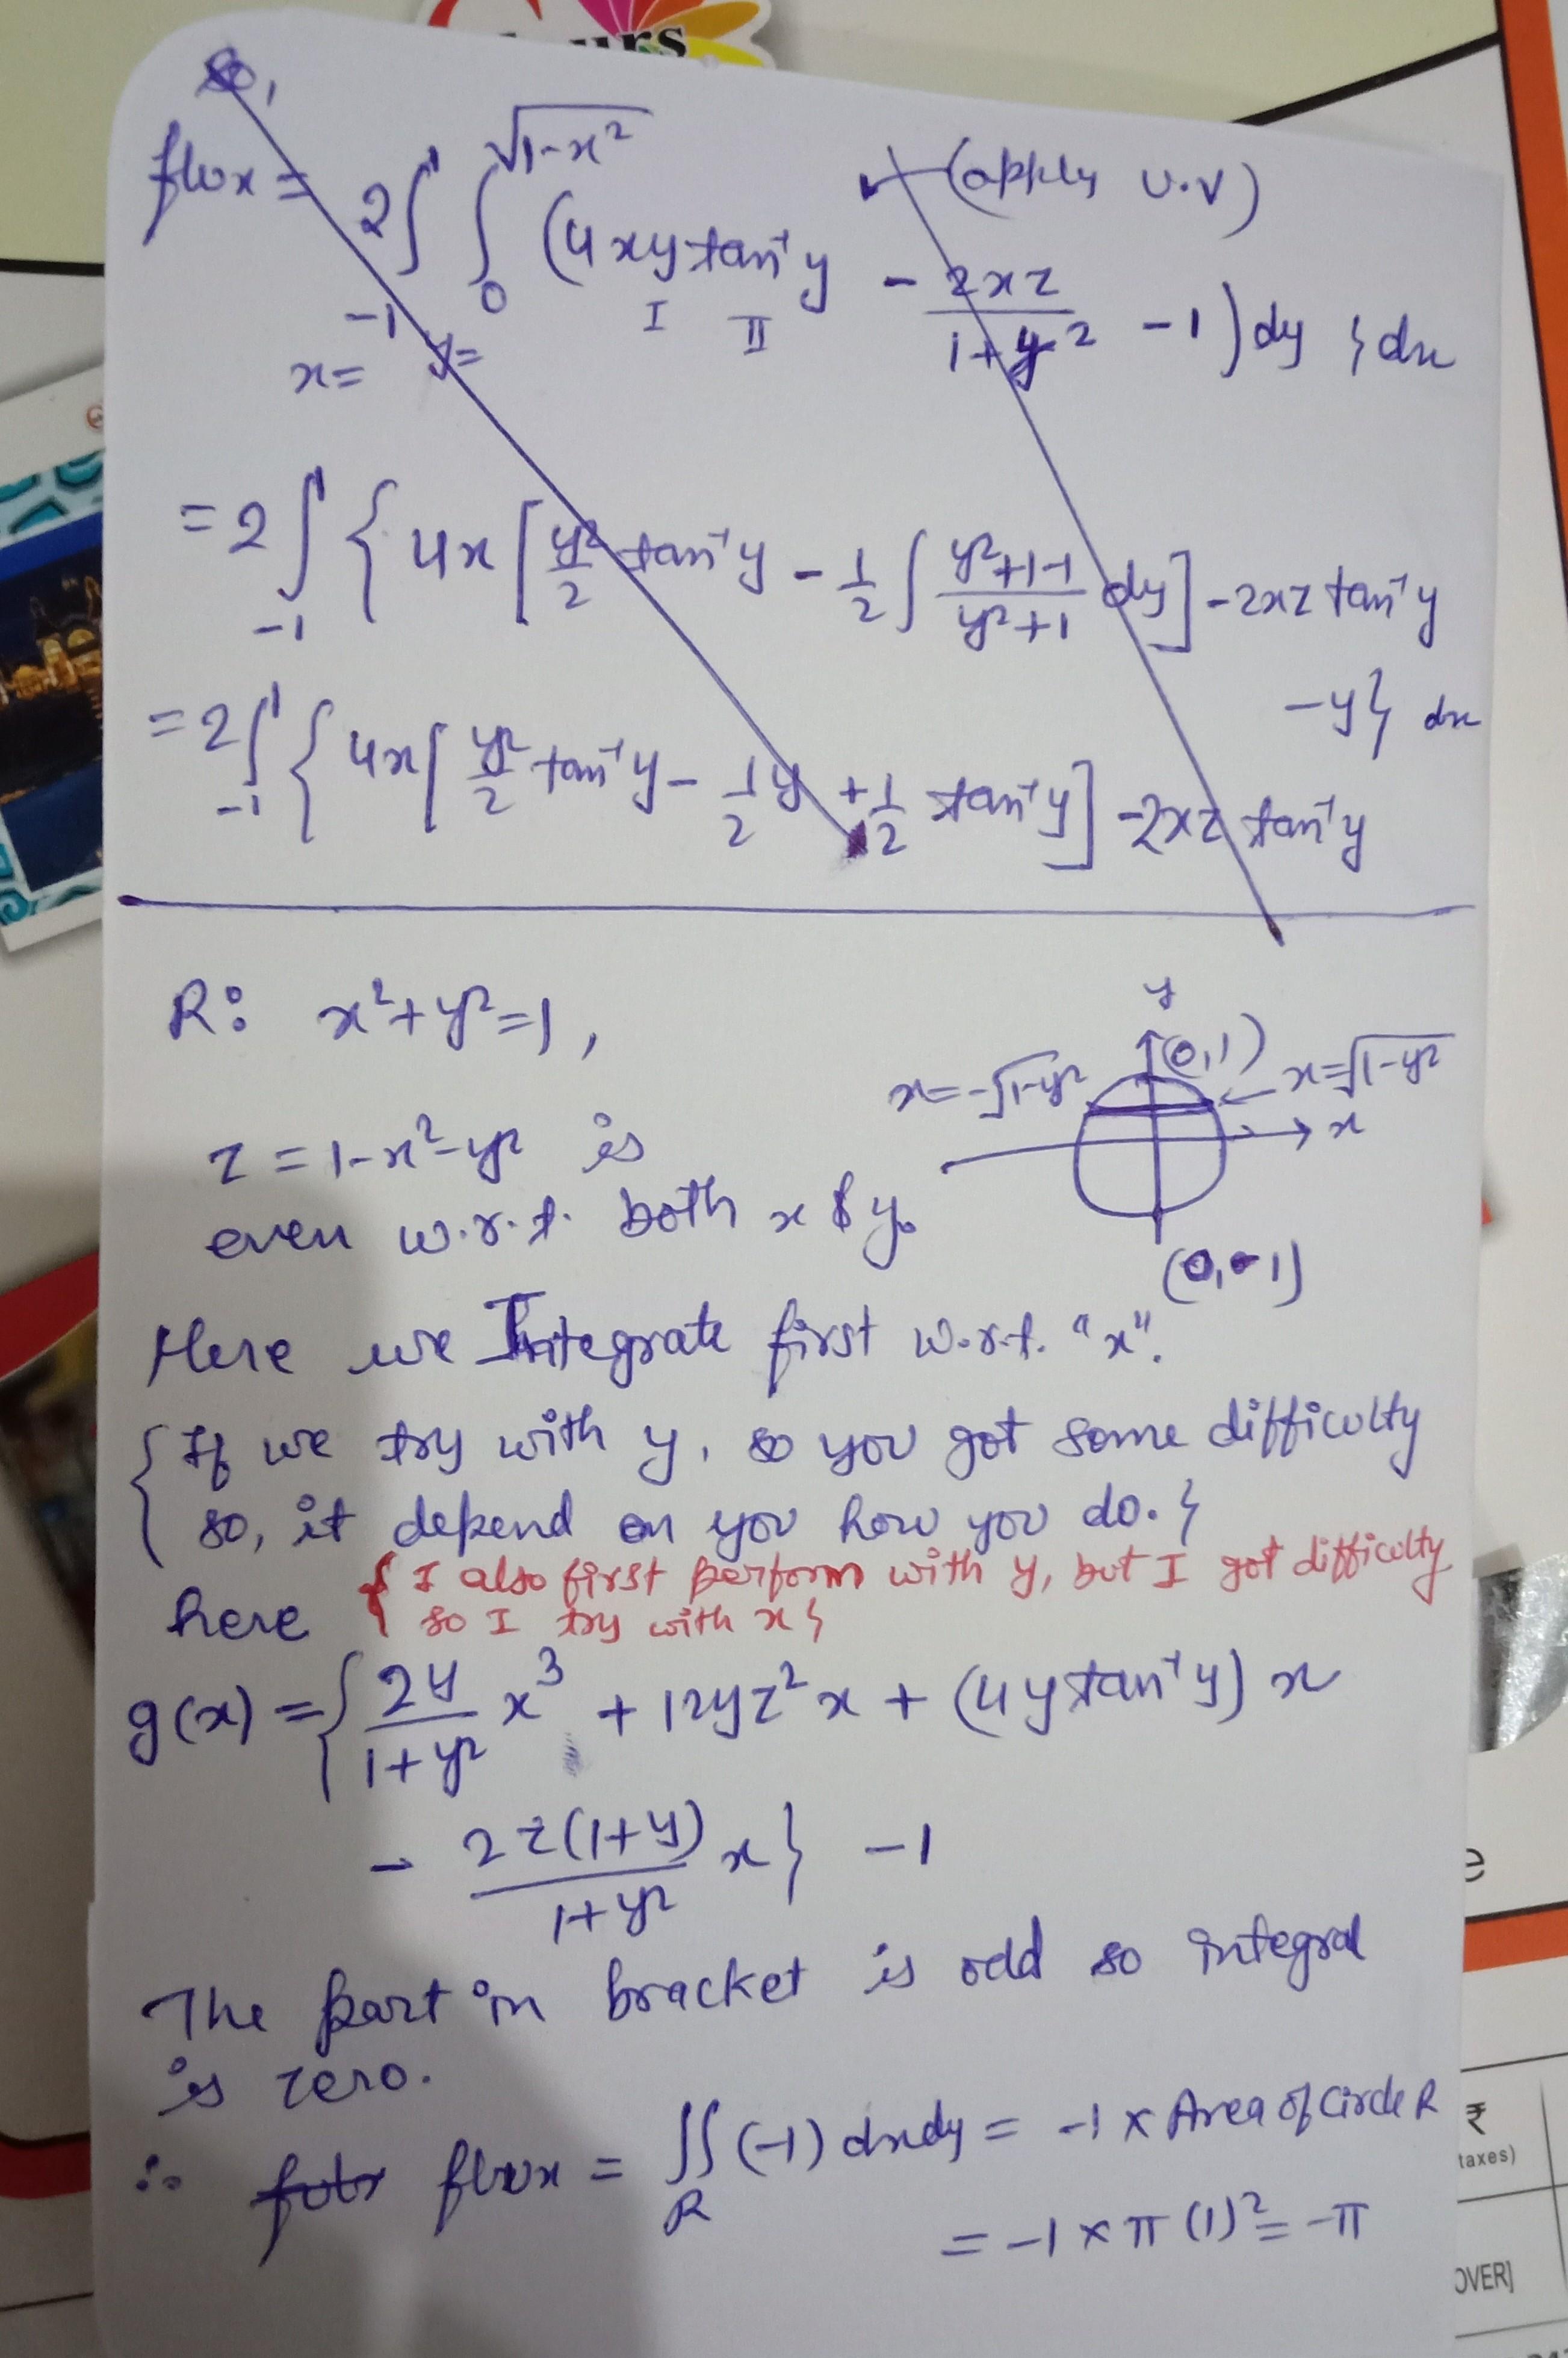 urs
flux = 2∫_{x=-1}^{1} ∫_{y=0}^{√1-x²} (4xy tan⁻¹y - 2xz/1+y² - 1) dy } dx
I II
(apply u.v)
= 2∫_{-1}^{1} { 4x [ y²/2 tan⁻¹y - 1/2 ∫ y²+1-1/y²+1 dy ] - 2xz tan⁻¹y
- y } dx
= 2∫_{-1}^{1} { 4x [ y²/2 tan⁻¹y - 1/2 y + 1/2 tan⁻¹y ] - 2xz tan⁻¹y
R: x²+y²=1,
y
(0,1)
x=-√1-y²
x=√1-y²
x
(0,-1)
z = 1-x²-y² is
even w.r.t. both x & y.
Here we Integrate first w.r.t. "x".
{ If we try with y, so you got some difficulty
so, it depend on you how you do. }
{ I also first perform with y, but I got difficulty
so I try with x }
here
g(x) = { 2y/1+y² x³ + 12yz²x + (4y tan⁻¹y) x
- 2z(1+y)/1+y² x } - 1
The part in bracket is odd so integral
is zero.
∴ flux = ∫∫_R (-1) dxdy = -1 x Area of Circle R
= -1 x π (1)² = -π
e
₹
taxes)
OVER]